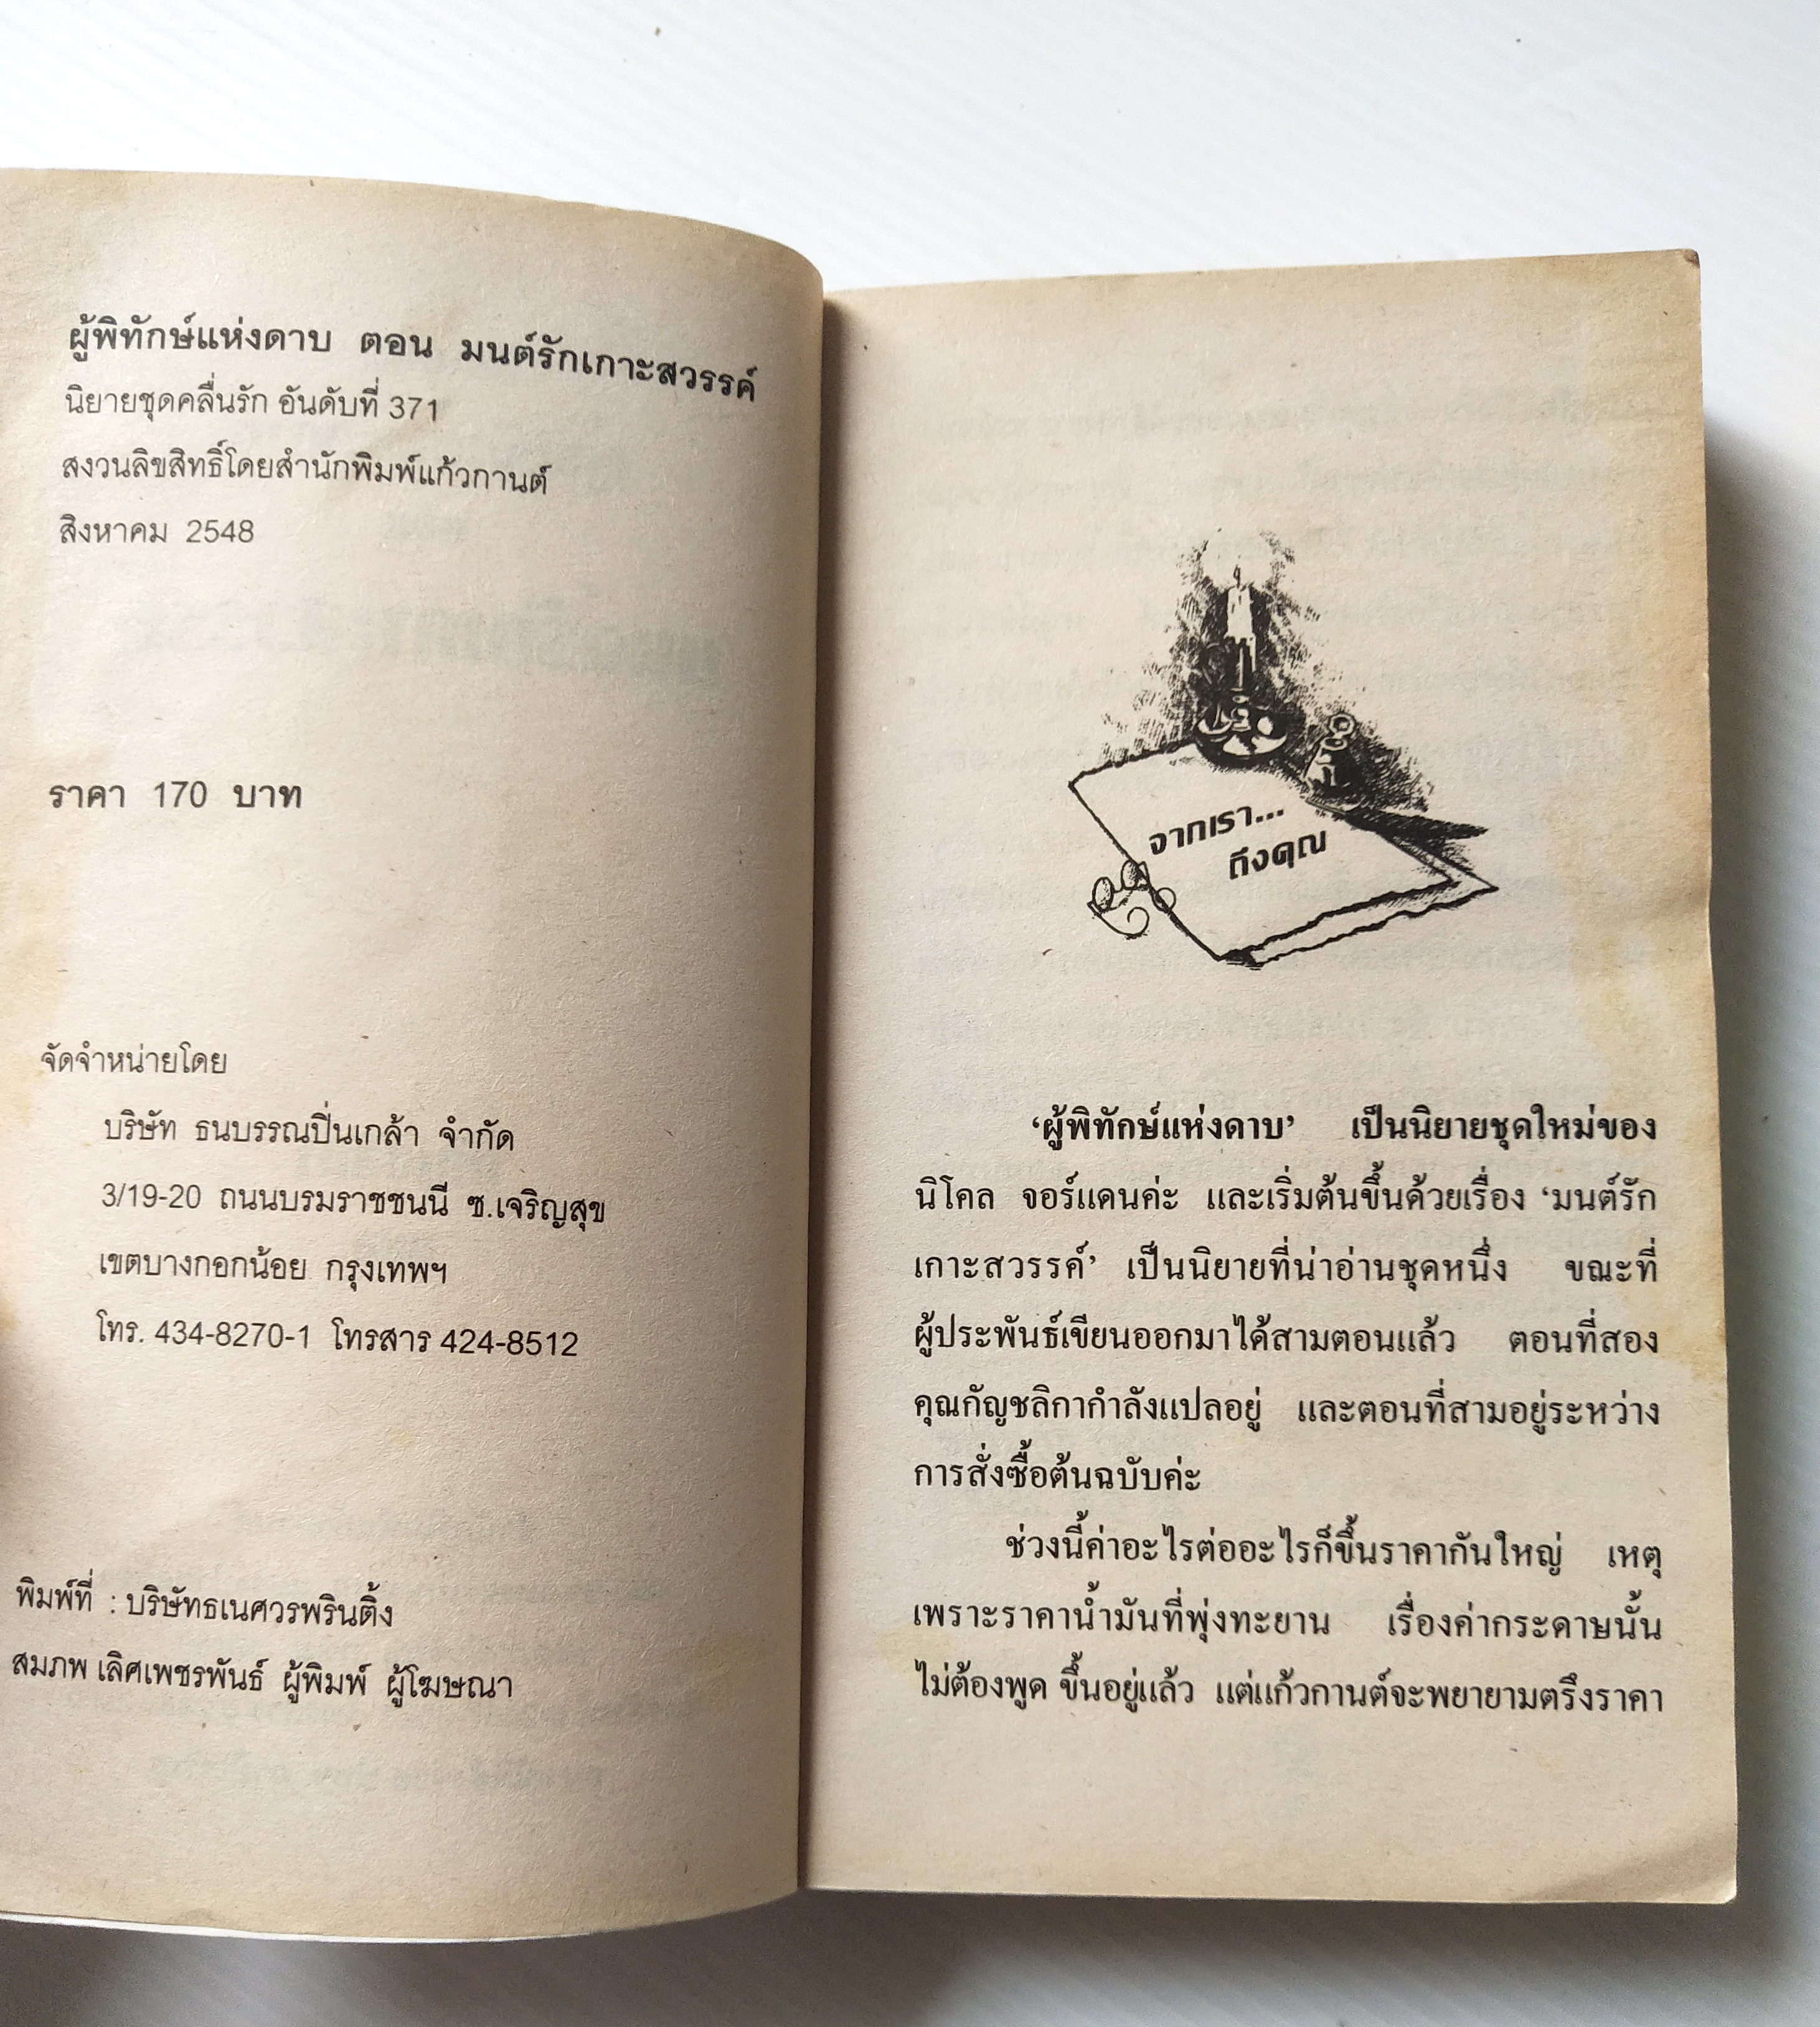 ผู้พิทักษ์แห่งดาบ ตอน มนต์รักเกาะสวรรค์
นิยายชุดคลื่นรัก อันดับที่ 371
สงวนลิขสิทธิ์โดยสำนักพิมพ์แก้วกานต์
สิงหาคม 2548
ราคา 170 บาท
จัดจำหน่ายโดย
บริษัท ธนบรรณปิ่นเกล้า จำกัด
3/19-20 ถนนบรมราชชนนี ซ.เจริญสุข
เขตบางกอกน้อย กรุงเทพฯ
โทร. 434-8270-1 โทรสาร 424-8512
พิมพ์ที่ : บริษัทธเนศวรพรินติ้ง
สมภพ เลิศเพชรพันธ์ ผู้พิมพ์ ผู้โฆษณา
จากเรา...
ถึงคุณ
‘ผู้พิทักษ์แห่งดาบ’ เป็นนิยายชุดใหม่ของ
นิโคล จอร์แดนค่ะ และเริ่มต้นขึ้นด้วยเรื่อง ‘มนต์รัก
เกาะสวรรค์’ เป็นนิยายที่น่าอ่านชุดหนึ่ง ขณะที่
ผู้ประพันธ์เขียนออกมาได้สามตอนแล้ว ตอนที่สอง
คุณกัญชลิกากำลังแปลอยู่ และตอนที่สามอยู่ระหว่าง
การสั่งซื้อต้นฉบับค่ะ
ช่วงนี้ค่าอะไรต่ออะไรก็ขึ้นราคากันใหญ่ เหตุ
เพราะราคาน้ำมันที่พุ่งทะยาน เรื่องค่ากระดาษนั้น
ไม่ต้องพูด ขึ้นอยู่แล้ว แต่แก้วกานต์จะพยายามตรึงราคา